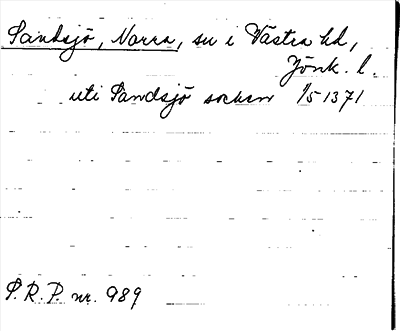 Sandsjö, Norra, sn i Västra hd,
Jönk. l.
uti Sandsjö socken 1/5 1371
S.R.P. nr. 989